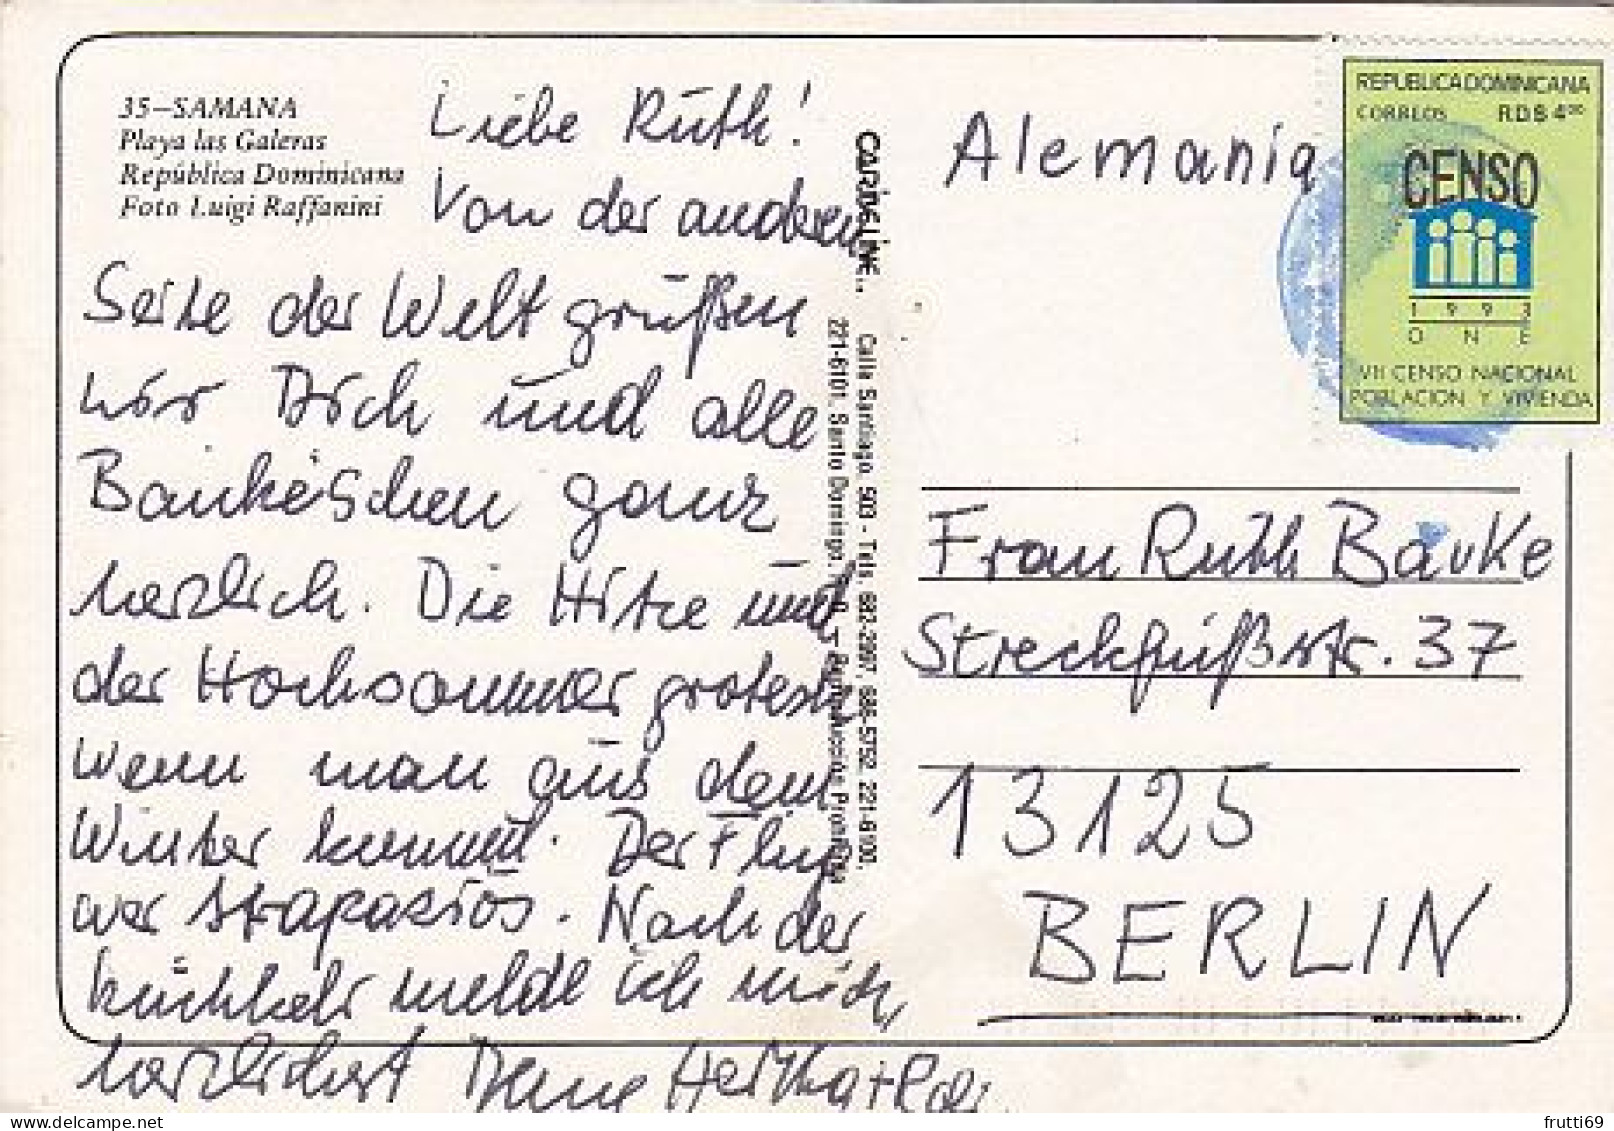 35–SAMANA
Playa las Galeras
República Dominicana
Foto Luigi Raffanini
Liebe Ruth!
Von der anderen
Seite der Welt grüßen
wir Dich und alle
Baukeschen ganz
herzlich. Die Hitze und
der Hochsommer grotesk
Wenn man aus dem
Winter kommt. Der Flug
war strapaziös. Nach der
Rückkehr melde ich mich,
herzlichst Deine
CARIBE LINE..
Calle Santiago, 503 - Tels. 682-3997, 686-5752, 221-6100,
221-6101, Santo Domingo, R.D. - Reproducción Prohibida
Alemania
REPUBLICA DOMINICANA
CORREOS RD$ 4⁰⁰
CENSO
1993
ONE
VII CENSO NACIONAL
POBLACION Y VIVIENDA
Frau Ruth Bauke
Streckfußstr. 37
13125
BERLIN
frutti69